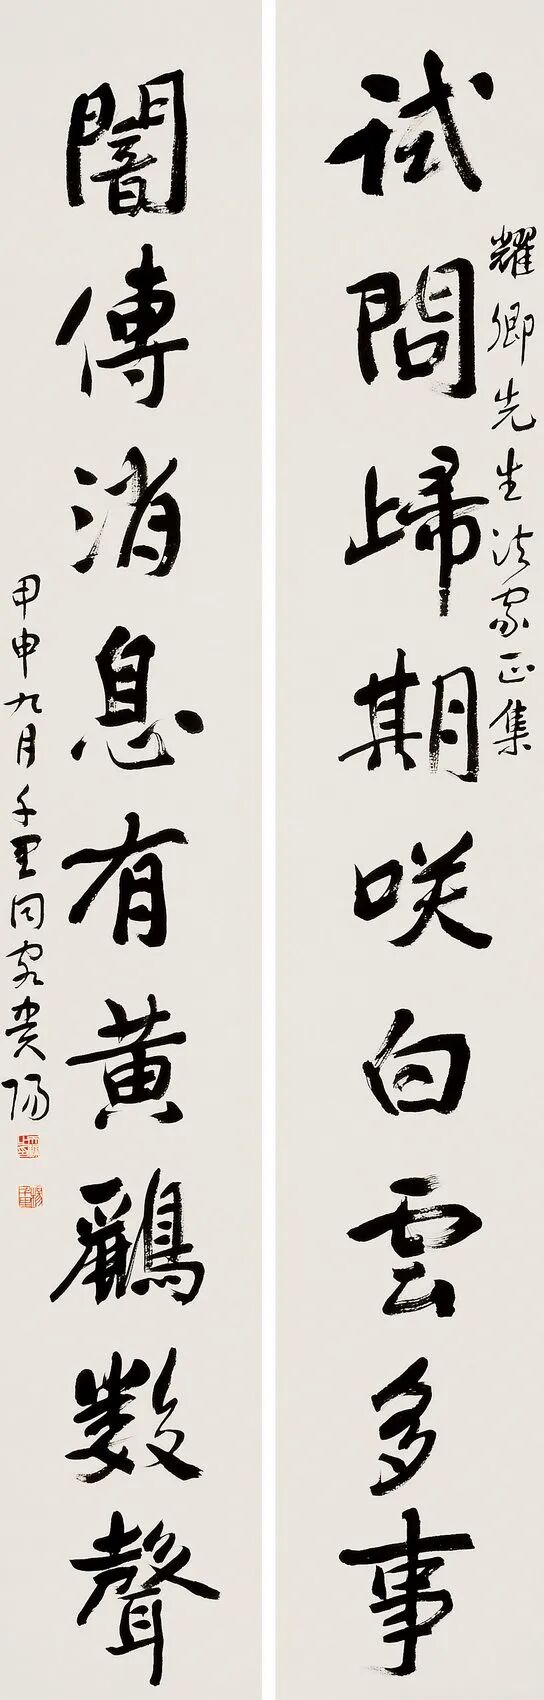 試問歸期咲白雲多事
耀卿先生法家正集
闇傳消息有黃鸝數聲
甲申九月千里同客貴陽